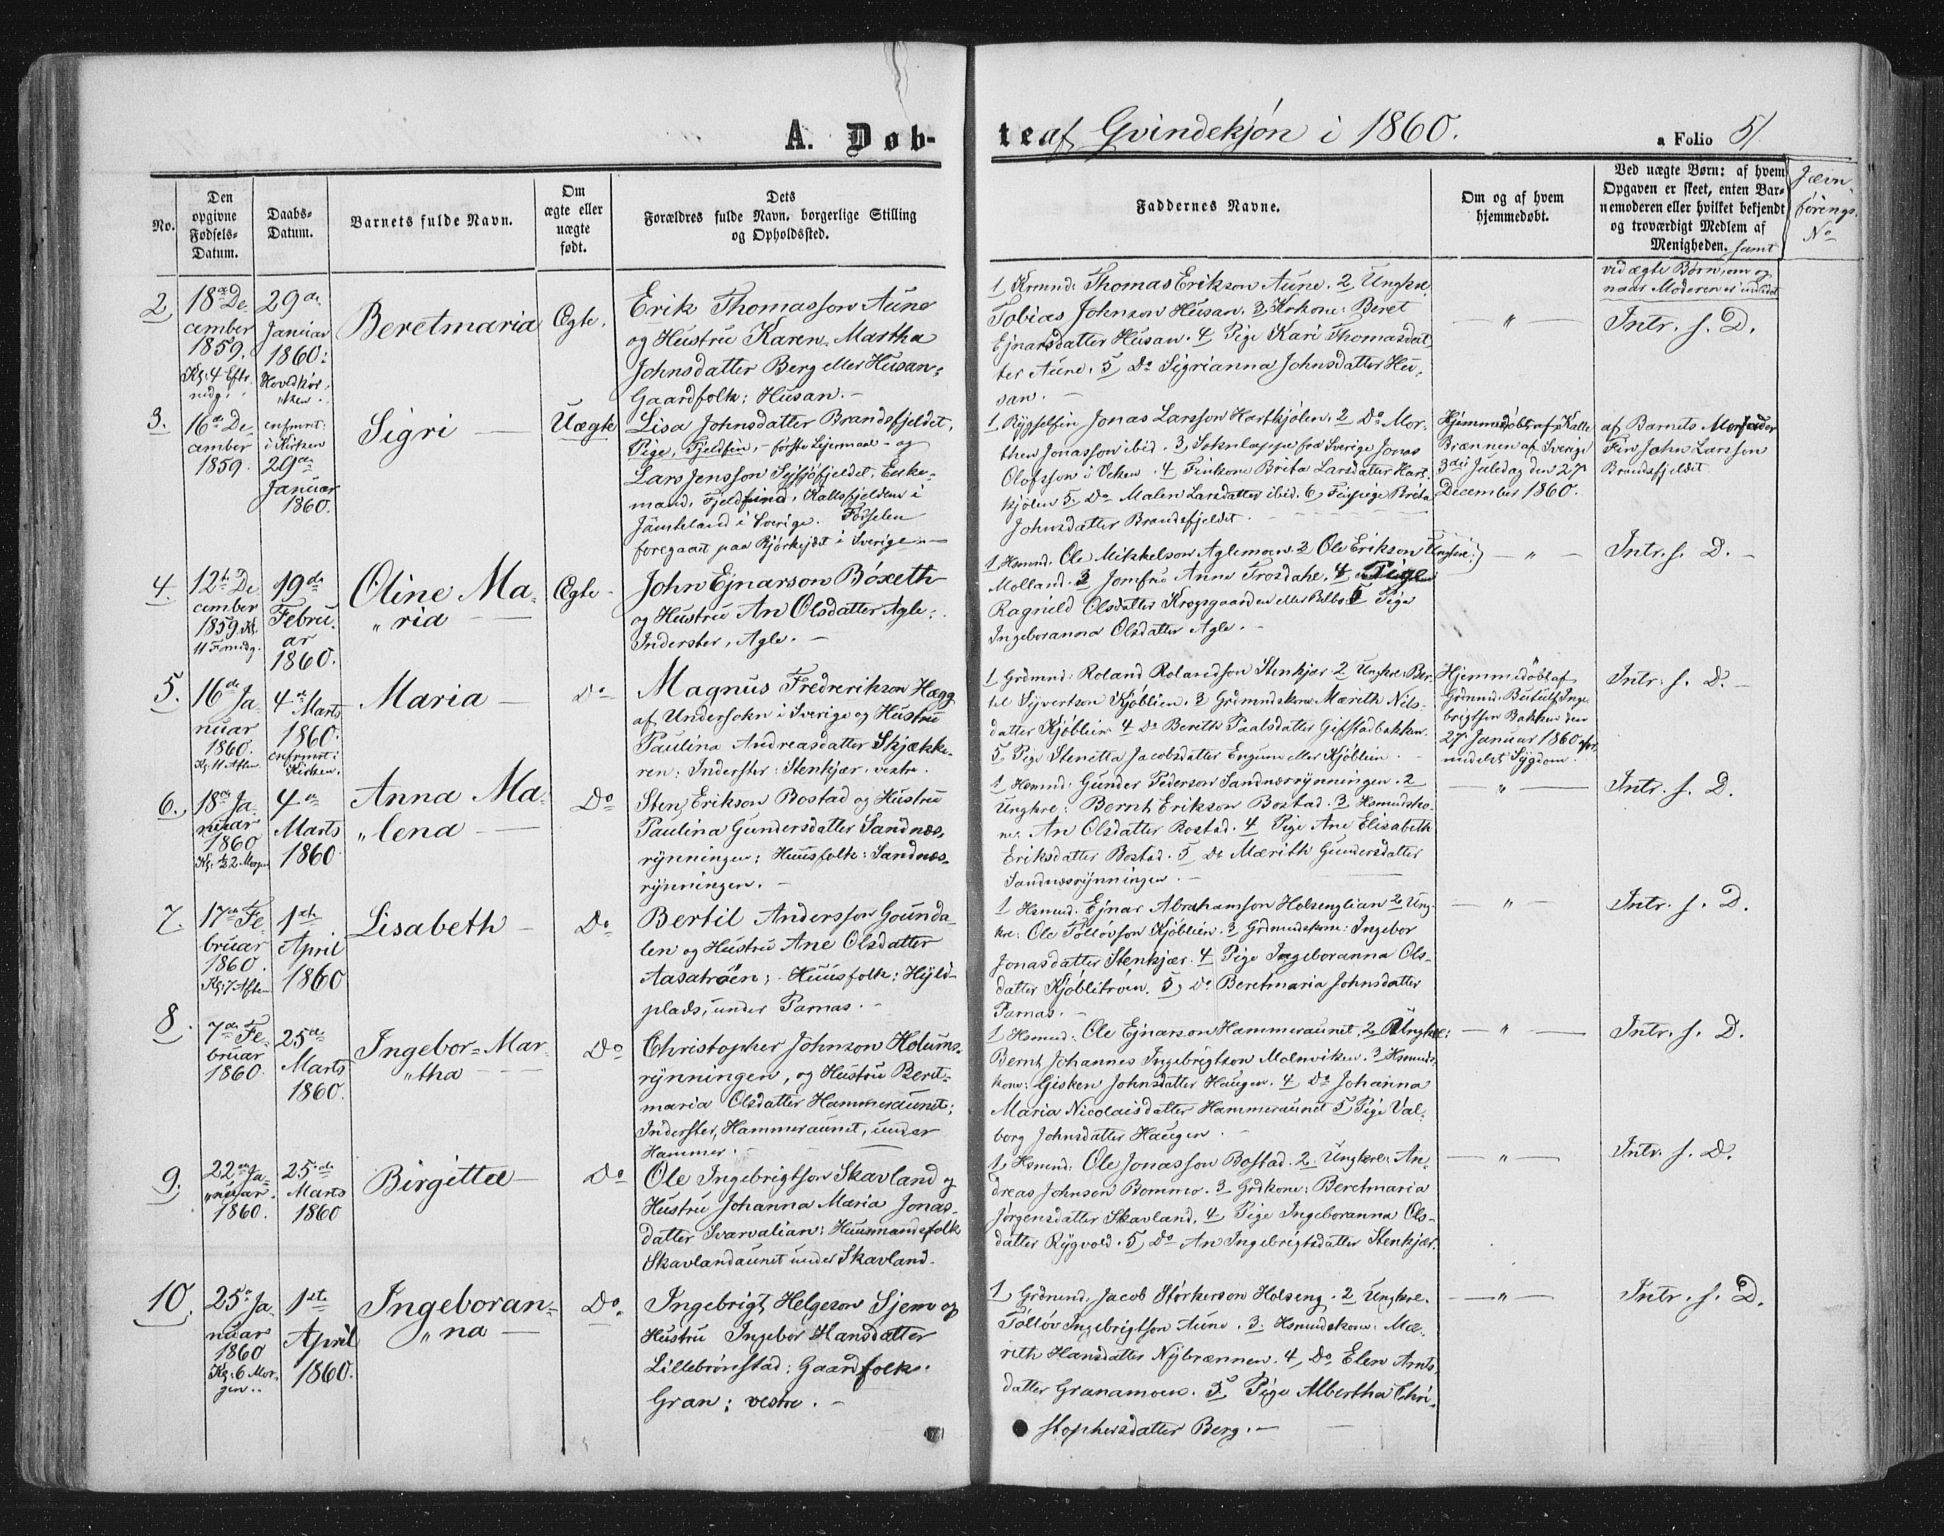 A. Døb-
te af Gvindekjøn i 1860.
a Folio 51
No.
Den opgivne Fødsels-Datum.
Daabs-Datum.
Barnets fulde Navn.
Om ægte eller uægte født.
Dets Forældres fulde Navn, borgerlige Stilling og Opholdssted.
Faddernes Navne.
Om og af hvem hjemmedøbt.
Ved uægte Børn: af hvem Opgaven er skeet, enten Barnemoderen eller hvilket bekjendt og troværdigt Medlem af Menigheden. samt
vid ægte Børn, om og
naar Moderen er
Jævn-
førings-
No
2.
18de De
cember
1859.
Kl: 4 Eftr.
midg.
29de
Januar
1860:
Hovedkir-
"ken.
Beretmaria
Ægte.
Erik Thomasson Aune
og Hustru Karen Martha
Johnsdatter Berg eller Husan:
Gaardfolk: Husan. –
1 Krmnd: Thomas Erikson Aune. 2 Ungkre.
Tobias Johnson Husan. 3 Krkone: Beret
Ejnarsdatter Husan. 4 Pige Kari Thomasdat
ter Aune. 5 Do Sigrianna Johnsdatter Hu-
san. –
— " —
Intr. s. D.
3.
16de De
cember
1859.
confrmrt:
i Kirken
29de
Januar
1860.
Sigri —
Uægte
Lisa Johnsdatter Brandsfjeldet,
Pige, Fjeldfin, – første Lejermaal – og
Lars Jensson
mand, Fjeldfind, Kaltsfjeldene i
Jämteland i Sverige. Fødselen
foregaaet paa Bjørkejdet i Sverige. —
1. Rygselfin Jonas Larsson Hartkjølen. 2 Do Mor-
then Jonasson ibid. 3 Soknlappe fra Sverige Jonas
Olofsson i Veken. 4 Finkone Brita Larsdatter Hart
kjølen 5, Do Malen Larsdatter ibid. 6, Finpige Brita
Johnsdatter Brandsfjeldet.
Hjemmedøbt af Kalle
Brænnen af Sverige
3die Juledag den 27
December 1860.
af Barnets Morfader
Fin John Larsson
Brandsfjeldet
4.
12te De
cember
1859. Kl.
11 Formdg.
19de
Febru.
ar
1860.
Oline Ma-
"ria —
Ægte –
John Ejnarson Böxeth
og Hustru An Olsdatter Agle:
Inderster, Agle. –
1 Hsmnd. Ole Mikkelson Aglemoen 2 Ole Erikson
Molland. 3 Jomfru Anne Trosdahl. 4 Pige
Ragnild Olsdatter Krogsgaarden eller Bilbo 5 Pige
Ingeboranna Olsdatter Agle. –
– " –
Intr. s. D. –
5.
16de Ja-
nuar
1860.
Kl: 11 Aften
4de
Marts
1860.
confrmrt i
Kirken.
Maria —
Do
Magnus Fredrerikson Hægg
af Undersokn i Sverige og Hustru
Paulina Andreasdatter Skjække-
ren: Inderster: Stenkjær, vestre.
1 Grdmnd: Roland Rolandson Stenkjær 2 Ungkre: Ber-
til Syvertson Kjøblien. 3 Grdmndskone Mærith Nils-
datter Kjøblien 4 Do Bereth Paalsdatter Gifstadbakken.
5 Pige Stenetta Jacobsdatter Engum eller Kjøblien. –
Hjemmedöbt af
Grdmnd. Botulf Inge
brigtson Bakken den
27 Januar 1860
Sygdom.
Intr. s. D. –
6.
18de Ja-
nuar
1860
Kl: ½2 Morgen
4de
Marts
1860.
Anna Ma-
"lena —
Do
Sten Erikson Bostad og Hustru
Paulina Gundersdatter Sandnæs,
rynningen; Huusfolk: Sandnæs-
rynningen. –
1 Hsmnd: Gunder Pederson Sandnæsrynningen. 2
Ungkre: Bernt Erikson Bostad. 3 Hsmndsko-
ne. An Olsdatter Bostad. 4 Pige Ane Elisabeth
Eriksdatter Bostad. 5 Do Mærith Gundersdatter
Sandnæsrynningen. –
— " —
Intr. s. D.
7.
17de Fe-
bruar
1860.
Kl: 7 Aften
1ste
April
1860
Lisabeth –
Do
Bertil Andersson Gounda-
len og Hustru Ane Olsdatter
Aasatröen; Huusfolk: Hyld-
plads, under Parnas. –
1 Hsmnd. Ejnar Abrahamson Holsenglian 2 Ung-
kre: Ole Tollövson Kjøblien. 3 Grdmndskone: Ingebor
Jonasdatter Stenkjær. 4 Pige Ingeboranna Ols-
datter Kjøblitröin. 5, Do Beretmaria Johnsdatter
Parnas. –
— " —
Intr. s. D.
8.
7de Fe-
bruar
1860.
25de
Marts
1860.
Ingebor-Mar-
"tha —
Do
Christopher Johnson Holums-
rynningen, og Hustru Beret-
maria Olsdatter Hammeraunet:
Inderster, Hammeraunet, under
Hammer. –
1 Hsmnd: Ole Ejnarson Hammeraunet. 2 Ungkre:
Bernt Johannes Ingebrigtson Molnviken. 3 Hsmnds-
kone: Gisken Johnsdatter Haugen. 4 Do Johanna
Maria Nicolaisdatter Hammeraunet 5 Pige Val-
borg Johnsdatter Haugen. –
— " —
Intr. s. D.
9.
22de Ja-
"nuar.
1860.
25de
Marts
1860
Birgitte –
Do
Ole Ingebrigtson Skavland og
Hustru Johanna Maria Jonas-
datter Svarvalian: Huusmandsfolk
Skavlandaunet under Skavland.
1 Hsmnd: Ole Jonasson Bostad. 2 Ungkre: An-
dreas Johnson Bommo. 3 Grdkone: Beretmaria
Jørgensdatter Skavland. 4 Pige Ingeboranna Ols-
datter Rygvold. 5 Do An Ingebrigtsdatter Stenkjær.
— " —
Intr. s. D.
10.
25de Ja-
nuar
1860
Kl: 6 Mor-
gen.
1ste
April
1860.
Ingeboran-
"na —
Do.
Ingebrigt Helgeson Sjem og
Hustru Ingebor Hansdatter
Lillebrönstad: Gaardfolk:
Gran; vestre. –
1 Grdmnd. Jacob Störkerson Holseng. 2 Ungkre.
Tollöv Ingebrigtson Aune. 3. Hsmndskone: Mæ-
rith Hansdatter Nybrænnen. 4, Do Elen Arnts
datter Granamoen. 5 Pige Albertha Chri-
stophersdatter Berg. –
— " —
Intr. s. D.